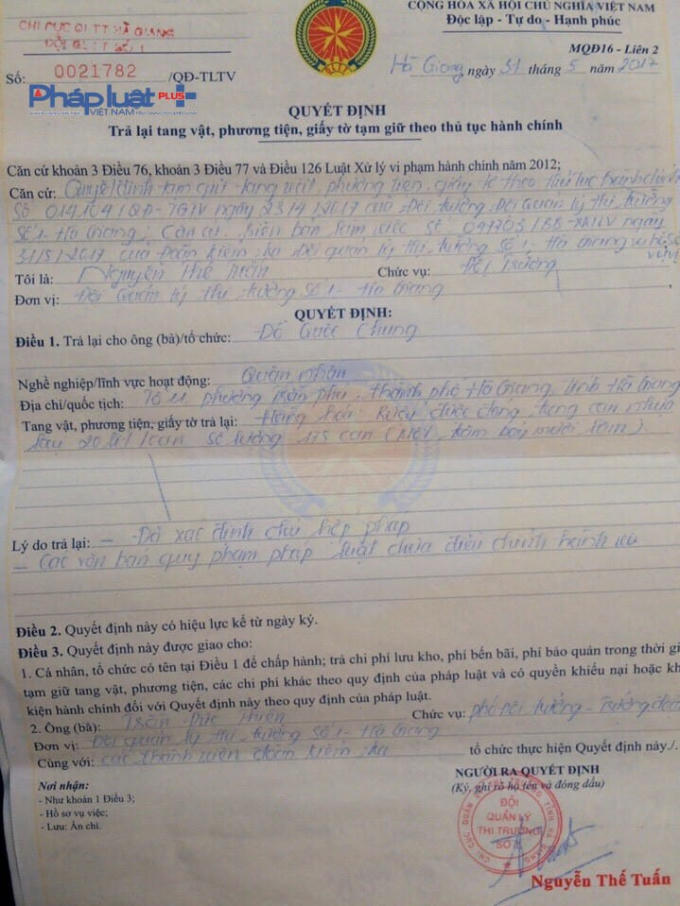 CỘNG HÒA XÃ HỘI CHỦ NGHĨA VIỆT NAM
Độc lập - Tự do - Hạnh phúc
CHI CỤC QLTT HÀ GIANG
ĐỘI QLTT SỐ 1
MQĐ16 - Liên 2
Số: 0021782 /QĐ-TLTV
Hà Giang, ngày 31 tháng 5 năm 2017
Pháp luật PLUS
VIỆT NAM
QUYẾT ĐỊNH
Trả lại tang vật, phương tiện, giấy tờ tạm giữ theo thủ tục hành chính
Căn cứ khoản 3 Điều 76, khoản 3 Điều 77 và Điều 126 Luật Xử lý vi phạm hành chính năm 2012;
Căn cứ: Quyết định tạm giữ tang vật, phương tiện, giấy tờ theo thủ tục hành chính
Số /QĐ-TGTV ngày 23/4/2017 của Đội trưởng Đội Quản lý thị trường
Số 1 - Hà Giang; Căn cứ biên bản làm việc số /BB- ngày
31/5/2017 của Đoàn kiểm tra Đội quản lý thị trường số 1 - Hà Giang
Tôi là: Nguyễn Thế Tuấn Chức vụ: Đội trưởng
Đơn vị: Đội Quản lý thị trường số 1 - Hà Giang
QUYẾT ĐỊNH:
Điều 1. Trả lại cho ông (bà)/tổ chức: Đỗ Quốc Chung
Nghề nghiệp/lĩnh vực hoạt động: Quân nhân
Địa chỉ/quốc tịch: Tổ 11 phường Trần Phú, thành phố Hà Giang, tỉnh Hà Giang
Tang vật, phương tiện, giấy tờ trả lại: Hàng hóa: Rượu được đựng trong can nhựa
20 lít/can Số lượng 175 can (Một trăm bảy mươi lăm).
Lý do trả lại: - Đã xác định chủ hợp pháp
- Các văn bản quy phạm pháp luật chưa điều chỉnh hành vi
Điều 2. Quyết định này có hiệu lực kể từ ngày ký.
Điều 3. Quyết định này được giao cho:
1. Cá nhân, tổ chức có tên tại Điều 1 để chấp hành; trả chi phí lưu kho, phí bến bãi, phí bảo quản trong thời gi
tạm giữ tang vật, phương tiện, các chi phí khác theo quy định của pháp luật và có quyền khiếu nại hoặc kh
kiện hành chính đối với Quyết định này theo quy định của pháp luật.
2. Ông (bà): Trần Đức Hiền Chức vụ: phó Đội trưởng - Trưởng đoàn
Đơn vị: Đội quản lý thị trường số 1 - Hà Giang
Cùng với: các thành viên đoàn kiểm tra tổ chức thực hiện Quyết định này./.
Nơi nhận:
- Như khoản 1 Điều 3;
- Hồ sơ vụ việc;
- Lưu: Ấn chỉ.
NGƯỜI RA QUYẾT ĐỊNH
(Ký, ghi rõ họ tên và đóng dấu)
ĐỘI
QUẢN LÝ
THỊ TRƯỜNG
SỐ 1
Nguyễn Thế Tuấn